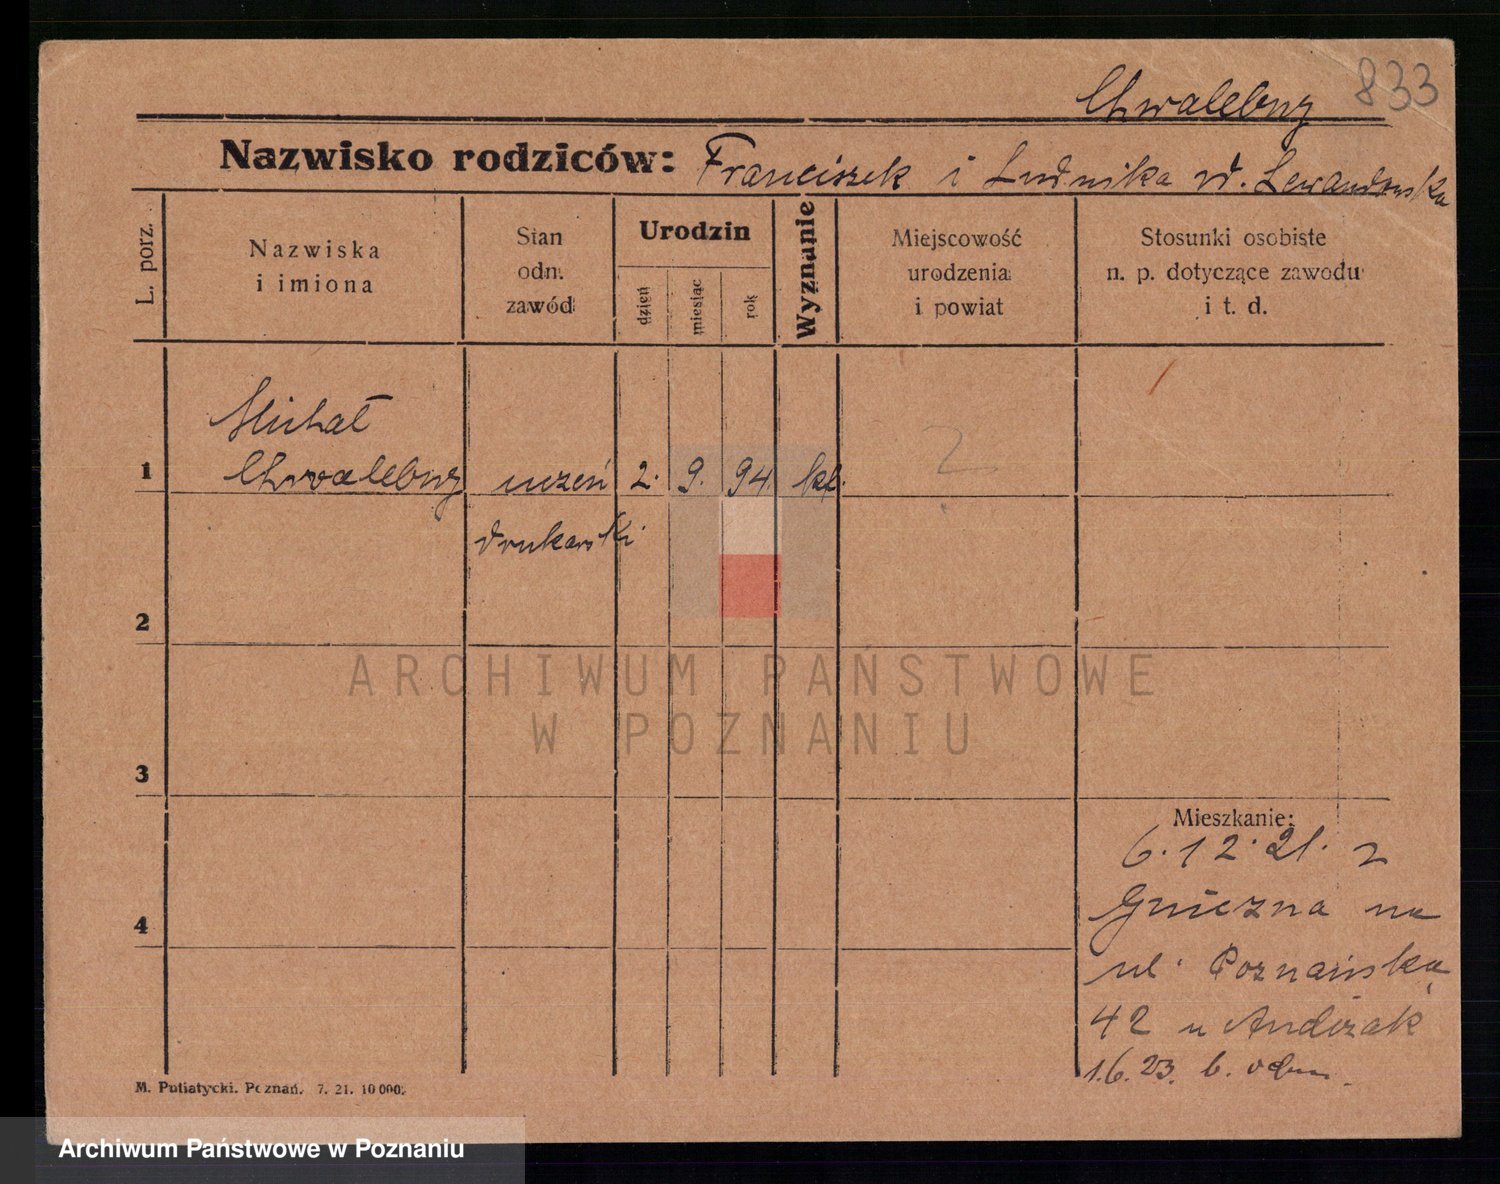 833
Chwalebny
Nazwisko rodziców: Franciszek i Ludwika d. Lewandowska
L. porz.
Nazwiska
i imiona
Stan
odn.
zawód
Urodzin
dzień
miesiąc
rok
Wyznanie
Miejscowość
urodzenia
i powiat
Stosunki osobiste
n. p. dotyczące zawodu
i t. d.
Michał
1 Chwalebny uczeń 2. 9. 94. kt.
drukarski
2
ARCHIWUM PAŃSTWOWE
W POZNANIU
3
Mieszkanie:
6.12.21. z
Gniezna na
4
ul. Poznańską
42 u Andrzak
1.6.23. b. odm.
M. Putiatycki. Poznań. 7. 21. 10 000.
Archiwum Państwowe w Poznaniu